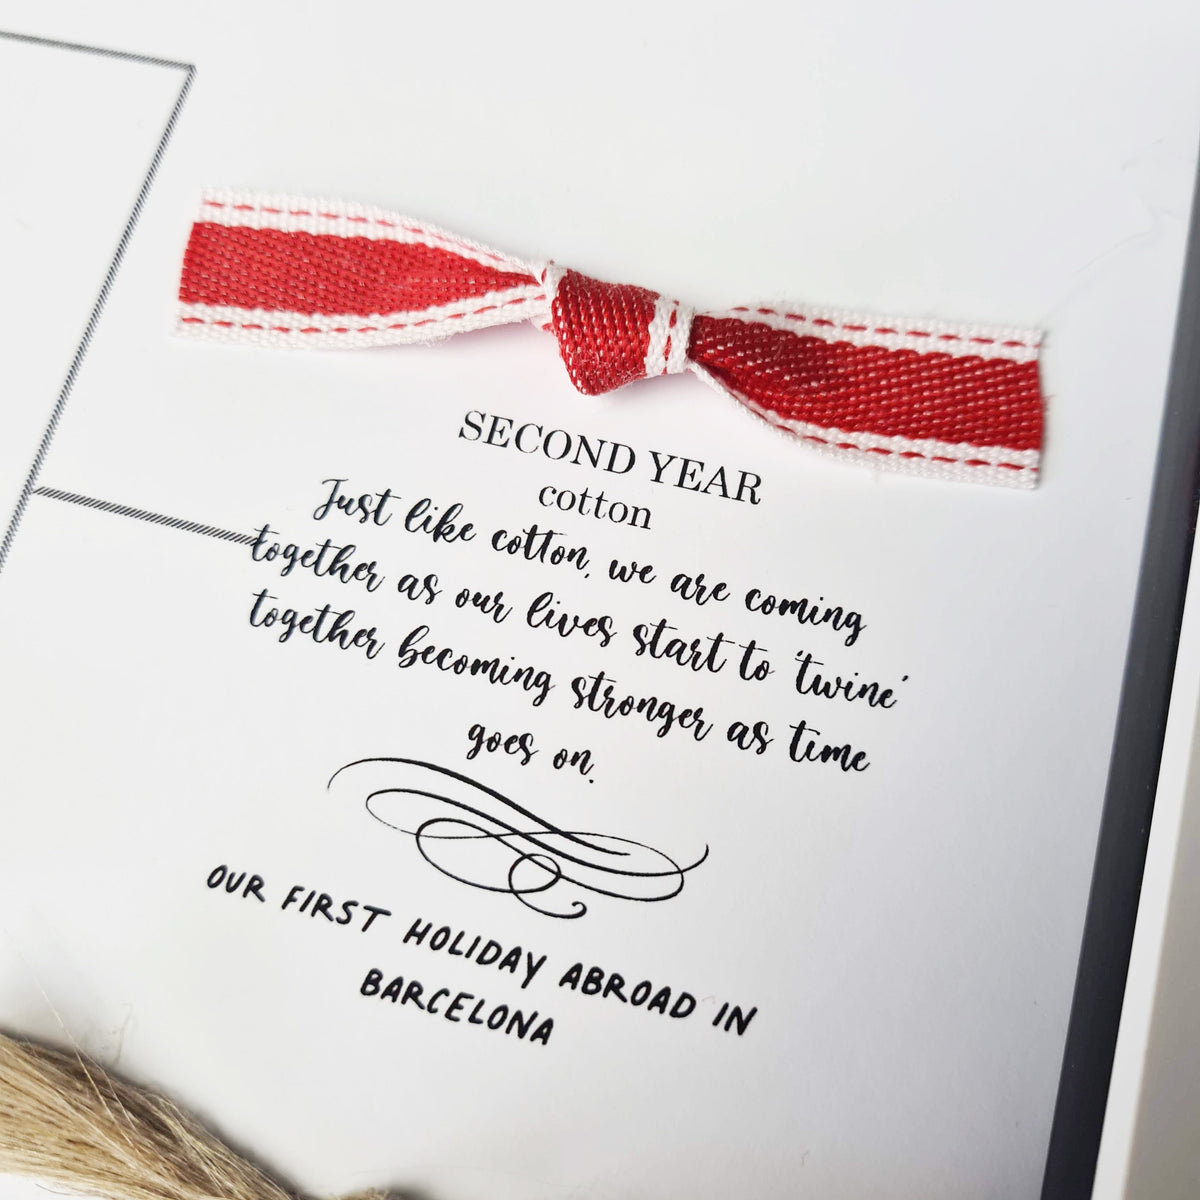 SECOND YEAR
cotton
Just like cotton, we are coming
together as our lives start to 'twine'
together becoming stronger as time
goes on.
OUR FIRST HOLIDAY ABROAD IN
BARCELONA